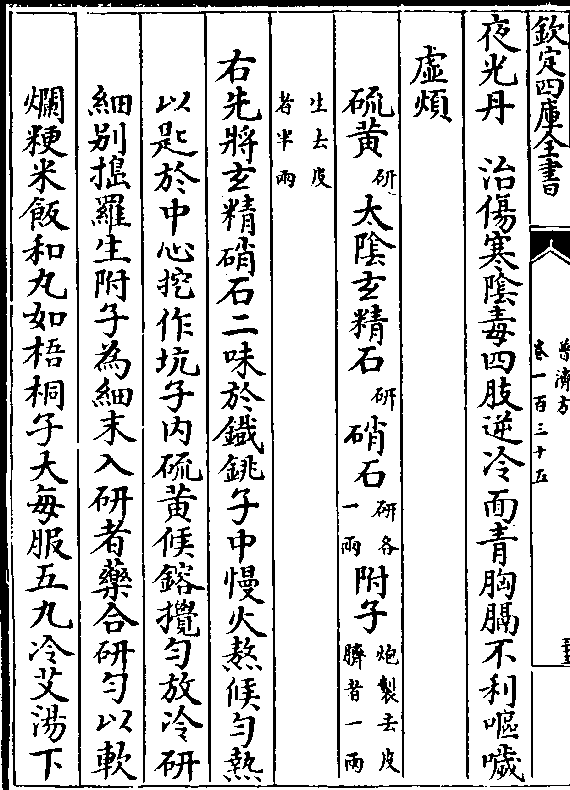 欽定四庫全書
普濟方
卷一百三十五
夜光丹　治傷寒陰毒四肢逆冷面青胸膈不利嘔噦
虛煩
硫黄研太陰玄精石研硝石研各一兩附子炮製去皮臍者一兩
生去皮者半兩
右先將玄精硝石二味於鐵銚子中慢火熬候勻熱
以匙於中心挖作坑子内硫黄候鎔攪勻放冷研
細别搗羅生附子為細末入研者藥合研勻以軟
爛粳米飯和丸如梧桐子大每服五丸冷艾湯下